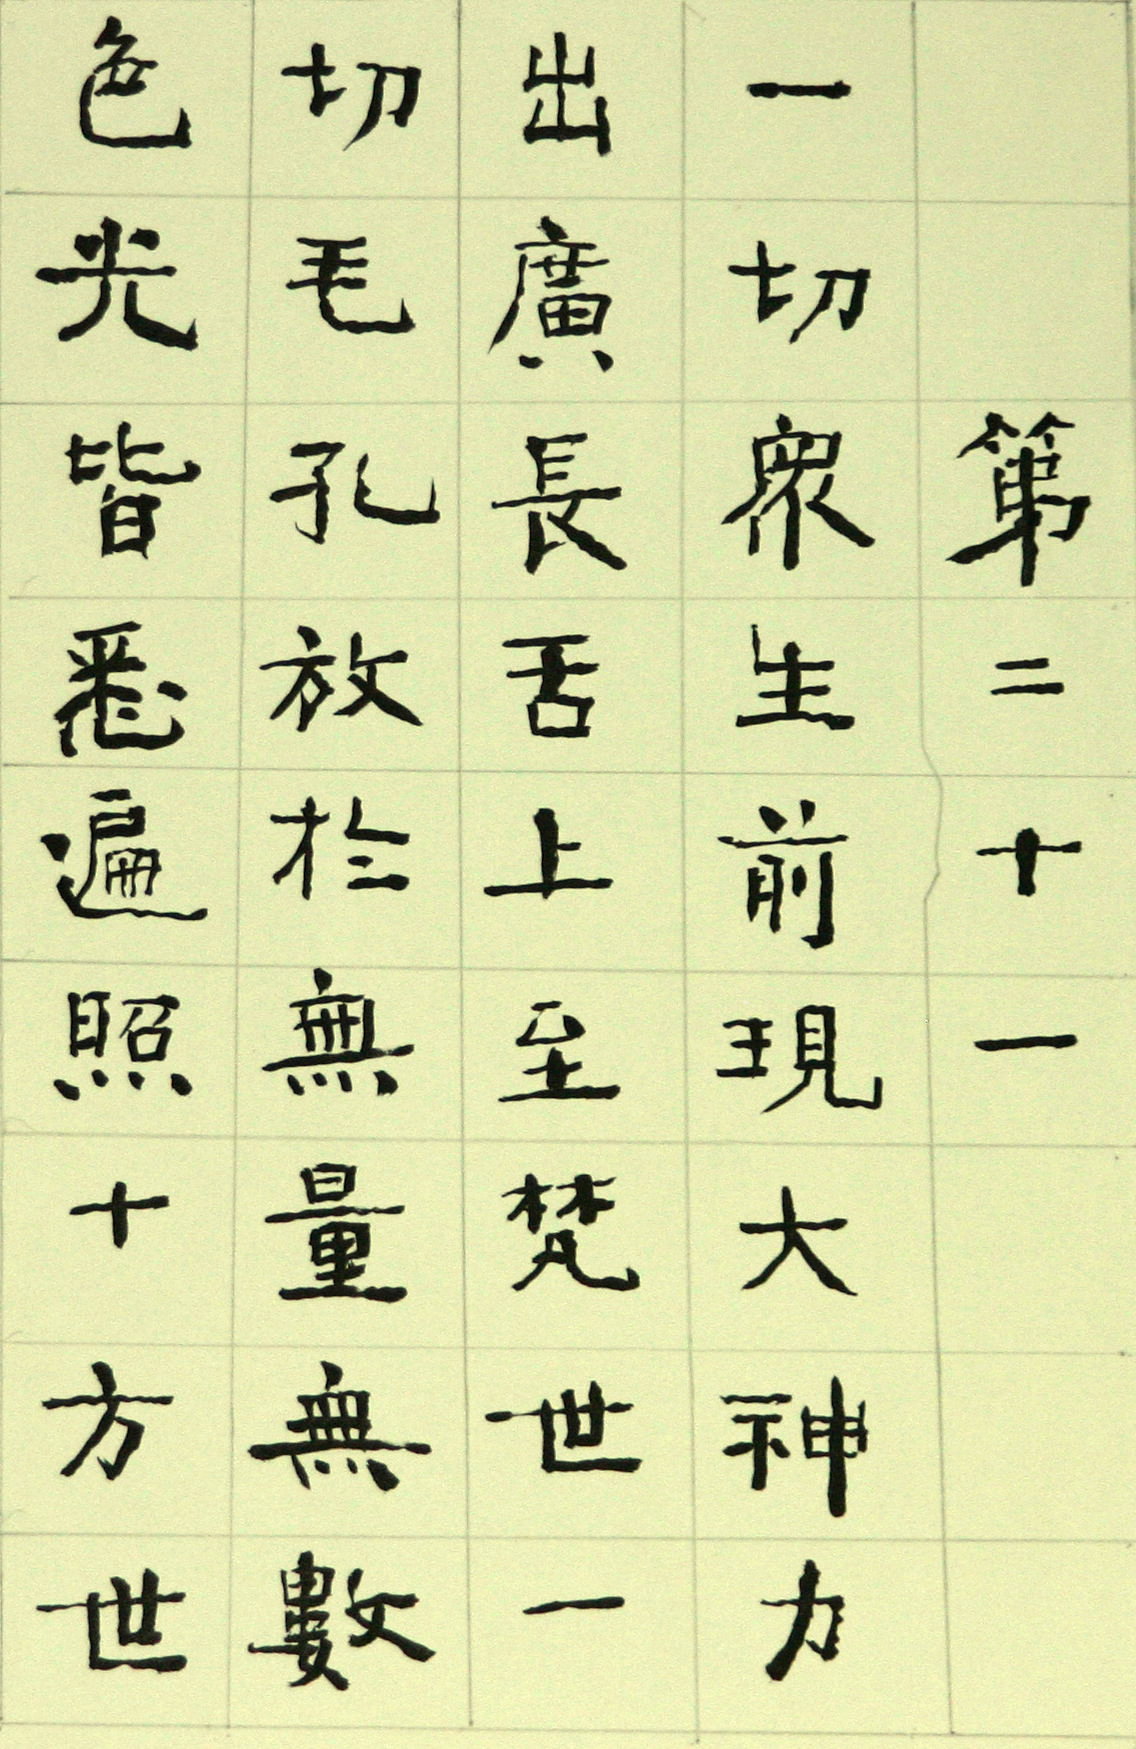 第二十一
一切眾生前現大神力
出廣長舌上至梵世一
切毛孔放於無量無數
色光皆悉遍照十方世